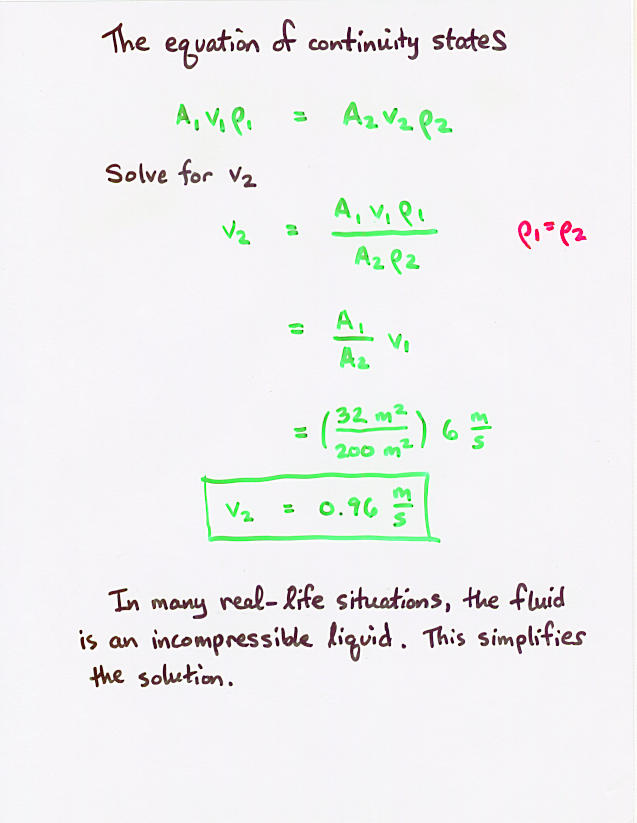 The equation of continuity states
A₁ v₁ ρ₁ = A₂ v₂ ρ₂
Solve for v₂
v₂ = A₁ v₁ ρ₁ / A₂ ρ₂ ρ₁ = ρ₂
= A₁ / A₂ v₁
= (32 m² / 200 m²) 6 m/s
v₂ = 0.96 m/s
In many real-life situations, the fluid
is an incompressible liquid. This simplifies
the solution.